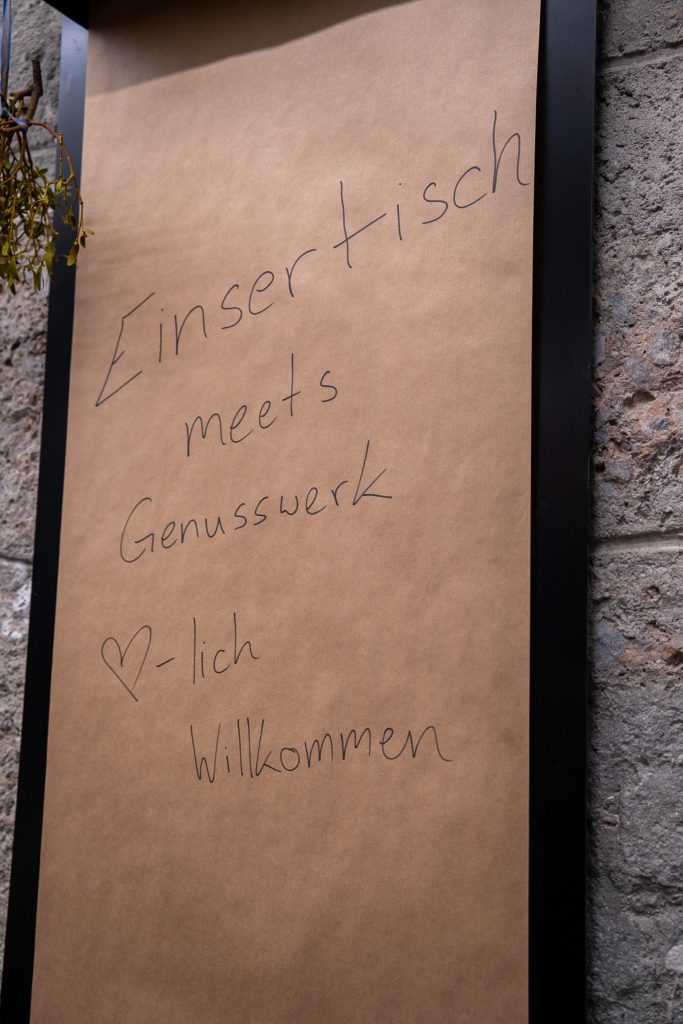 Einsertisch
meets
Genusswerk
♡-lich
Willkommen